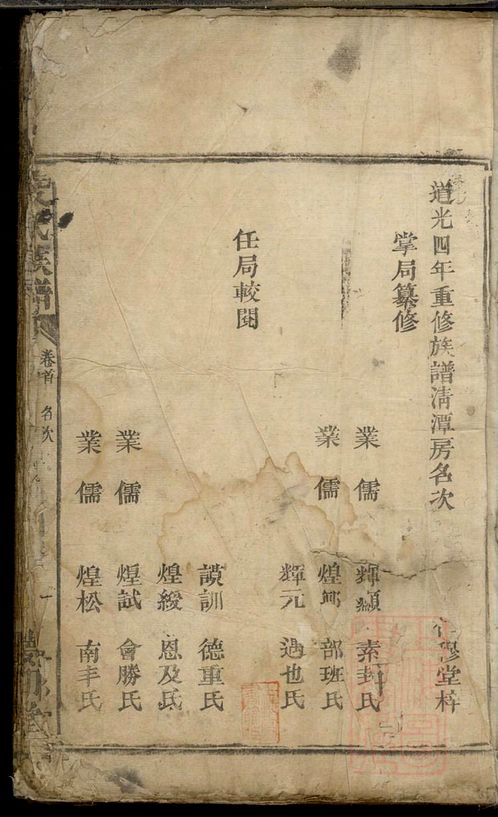 道光四年重修族譜清潭房名次
穆堂梓
掌局纂修
業儒 輝 素封氏
業儒 煌 部班氏
輝元 過也氏
任局較閱
謨訓 德重氏
煌綬 恩及氏
業儒 煌試 會勝氏
業儒 煌松 南丰氏
氏族譜
卷首 名次
一